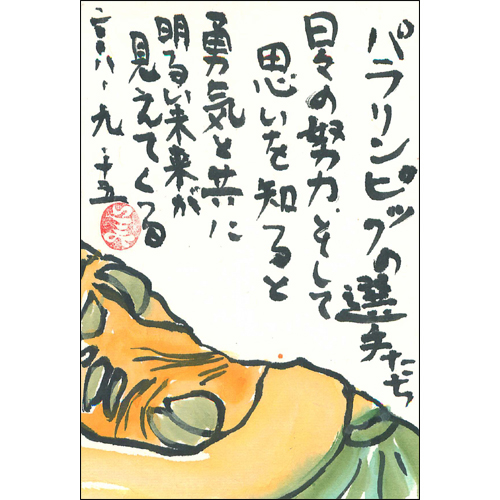 パラリンピックの選手たち
日々の努力、そして
思いを知ると
勇気と共に
明るい未来が
見えてくる
二〇〇八・九・十五